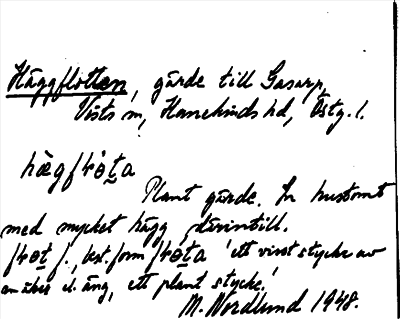 Häggflotten, gärde till Gasarp,
Vists sn, Hanekinds hd, Östg. l.
hägfɬøta
Plant gärde. En hustomt
med mycket hägg därintill.
fɬøt f., best. form fɬøta 'ett visst stycke av
en åker el. äng, ett plant stycke.'
M. Nordlund 1948.